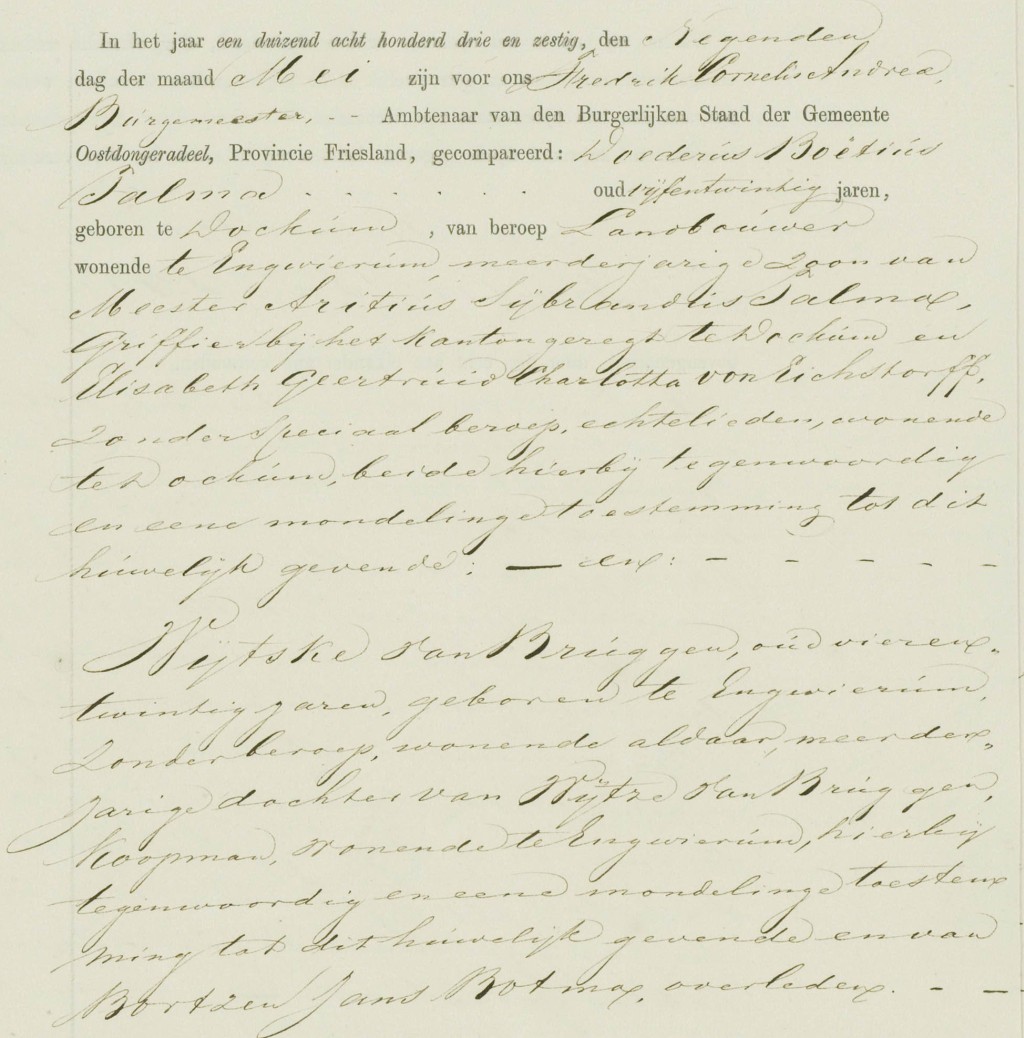 In het jaar een duizend acht honderd drie en zestig, den Negenden
dag der maand Mei zijn voor ons Fredrik Cornelis Andrea,
Burgemeester, - - Ambtenaar van den Burgerlijken Stand der Gemeente
Oostdongeradeel, Provincie Friesland, gecompareerd: Doederus Boëtius
Talma . . . . . . oud vijfentwintig jaren,
geboren te Dockum, van beroep Landbouwer
wonende te Engwierum, meerderjarige zoon van
Meester Aritius Sijbrandus Talma,
Griffier bij het Kantongeregt te Dockum en
Elisabeth Geertruid Charlotta von Eichstorff,
zonder speciaal beroep, echtelieden, wonende
te Dockum, beide hierbij tegenwoordig
en eene mondelinge toestemming tot dit
huwelijk gevende; — en: - - - - -
Wijtske van Bruggen, oud vieren„
twintig jaren, geboren te Engwierum,
zonder beroep, wonende aldaar, meerder„
jarige dochter van Wijtze van Bruggen,
Koopman, wonende te Engwierum, hierbij
tegenwoordig en eene mondelinge toestem
ming tot dit huwelijk gevende en van
Jans Botma, overleden. - -